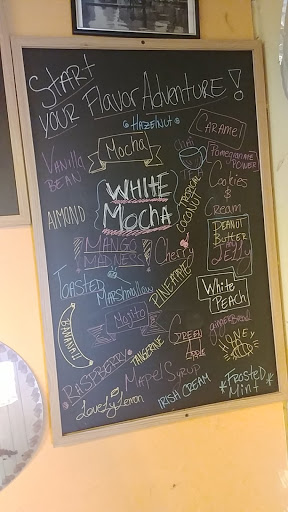 START
YOUR FlavorAdventure!
HAZELNUT
CARAMEL
Mocha
CHAI
TEA
Pomegranate
POWER
Vanilla
BEAN
WHITE
MOCHA
TROPICAL
COCONUT
Cookies
&
Cream
AlMOND
PEANUT
BUTTER
JELLY
MANGO
MADNESS
Cherry
TOASTED
MARSHMALLOW
PINEAPPLE
White
PEACH
BANANA!!
Mojito
GREEN
Apple
gingerbread
HONEY
RASPBERRY
TANGERINE
MapelSyrup
LoveLyLemon
IRISH CREAM
FROSTED
Mint